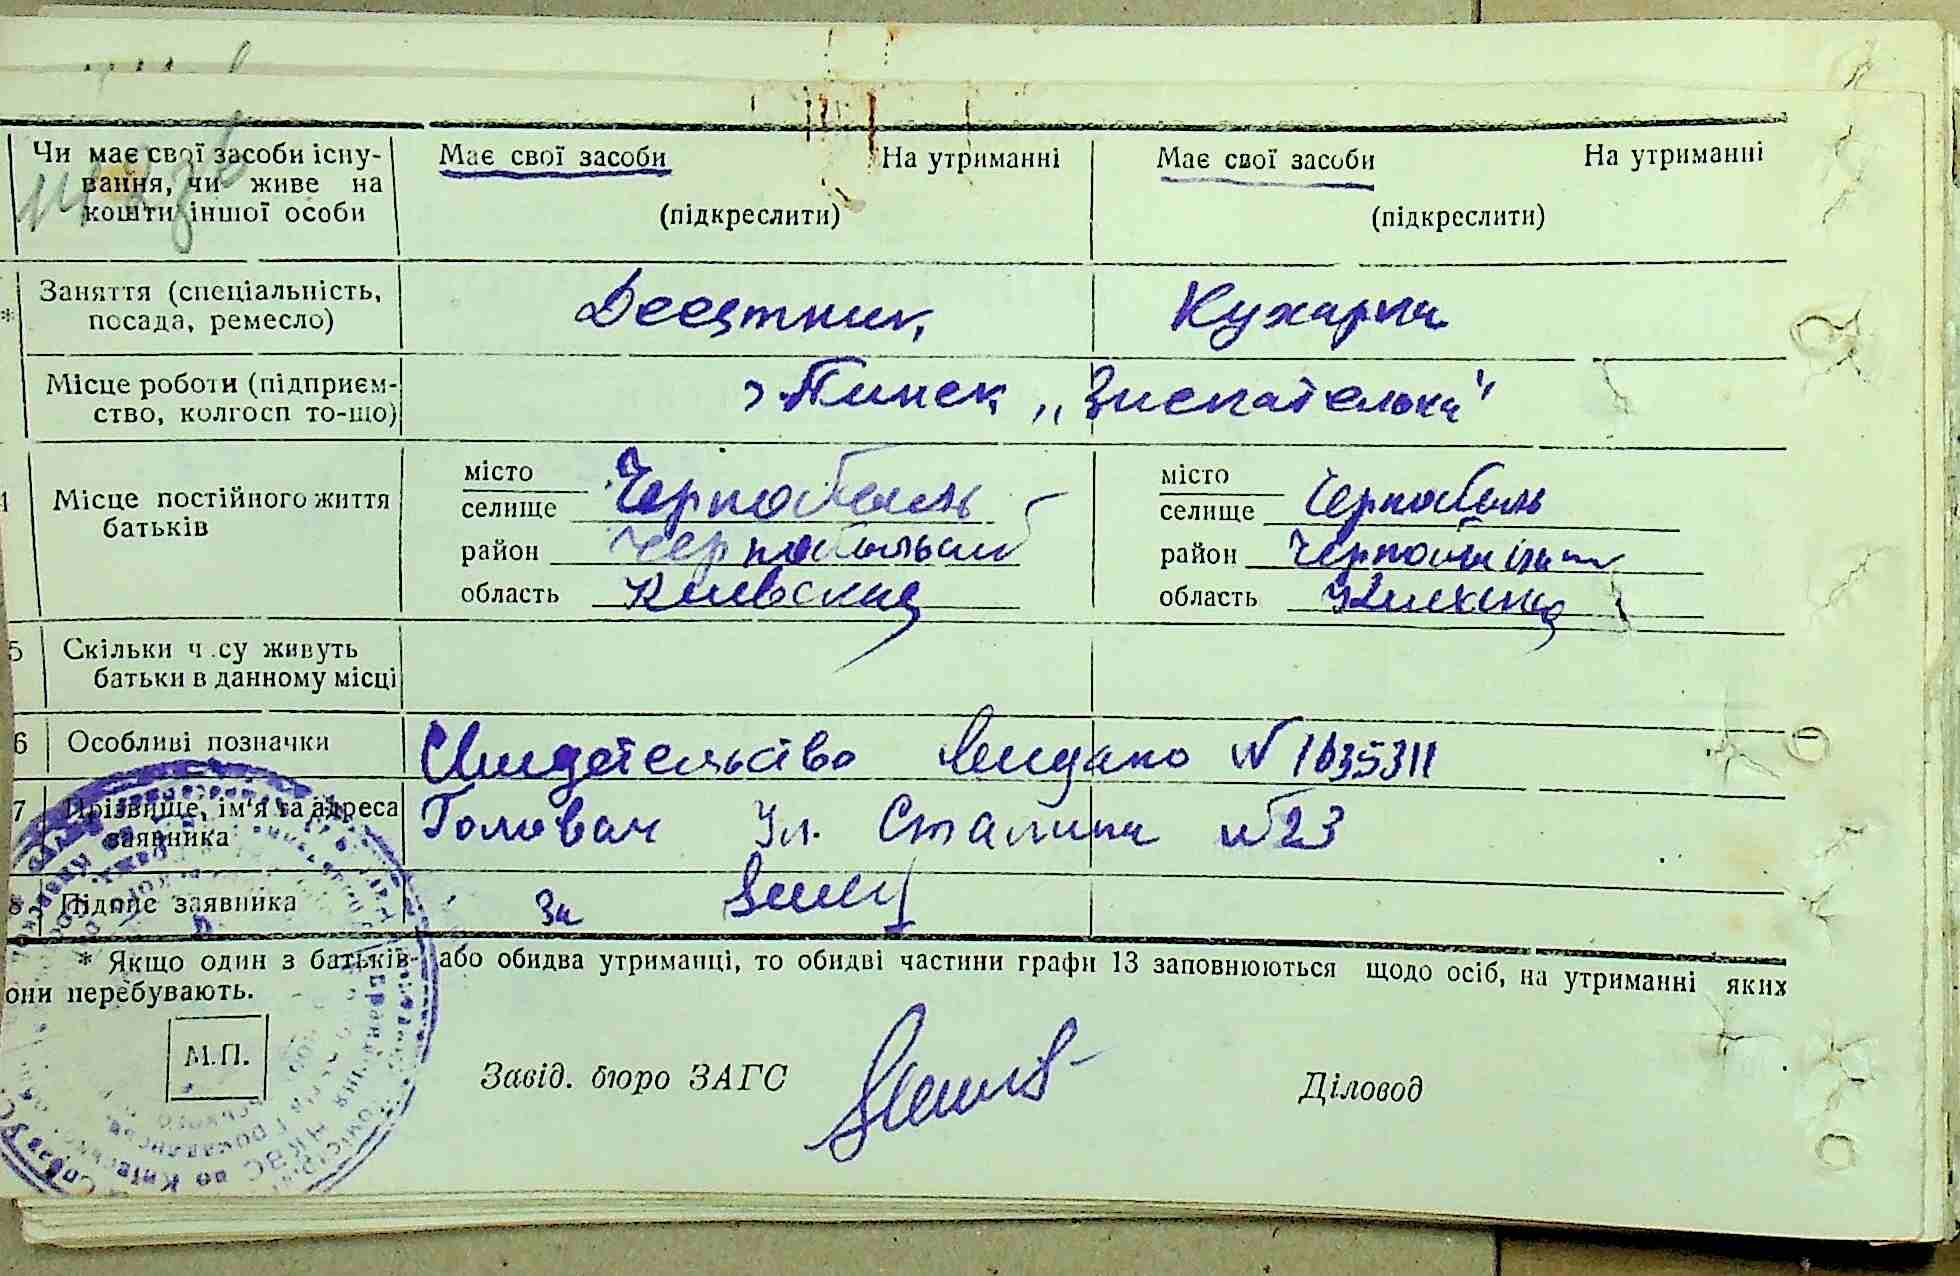 Чи має свої засоби існу-
вання, чи живе на
кошти іншої особи
Має свої засоби На утриманні
(підкреслити)
Має свої засоби На утриманні
(підкреслити)
* Заняття (спеціальність,
посада, ремесло)
Десятник
Кухарка
Місце роботи (підприєм-
ство, колгосп то-що)
Місце постійного життя
батьків
місто
селище Чернобыль
район
область Киевская
місто
селище Чернобыль
район
область
5 Скільки ч.су живуть
батьки в данному місці
6 Особливі позначки
Свидетельство выдано № 1035311
7 Прізвище, ім'я та адреса
заявника
Головач Ул. Сталина № 23
8 Підпис заявника
За
* Якщо один з батьків або обидва утриманці, то обидві частини графи 13 заповнюються щодо осіб, на утриманні яких
они перебувають.
М.П.
Завід. бюро ЗАГС
Діловод